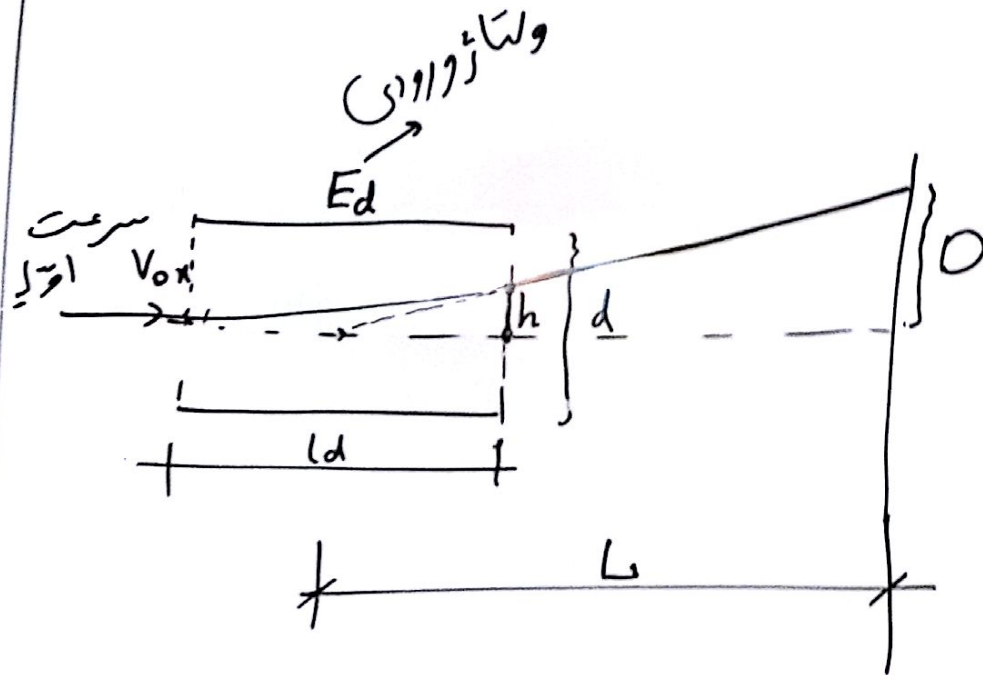 ولتاژ ورودی
Ed
سرعت
اولیه
Vox
h
d
D
ld
L